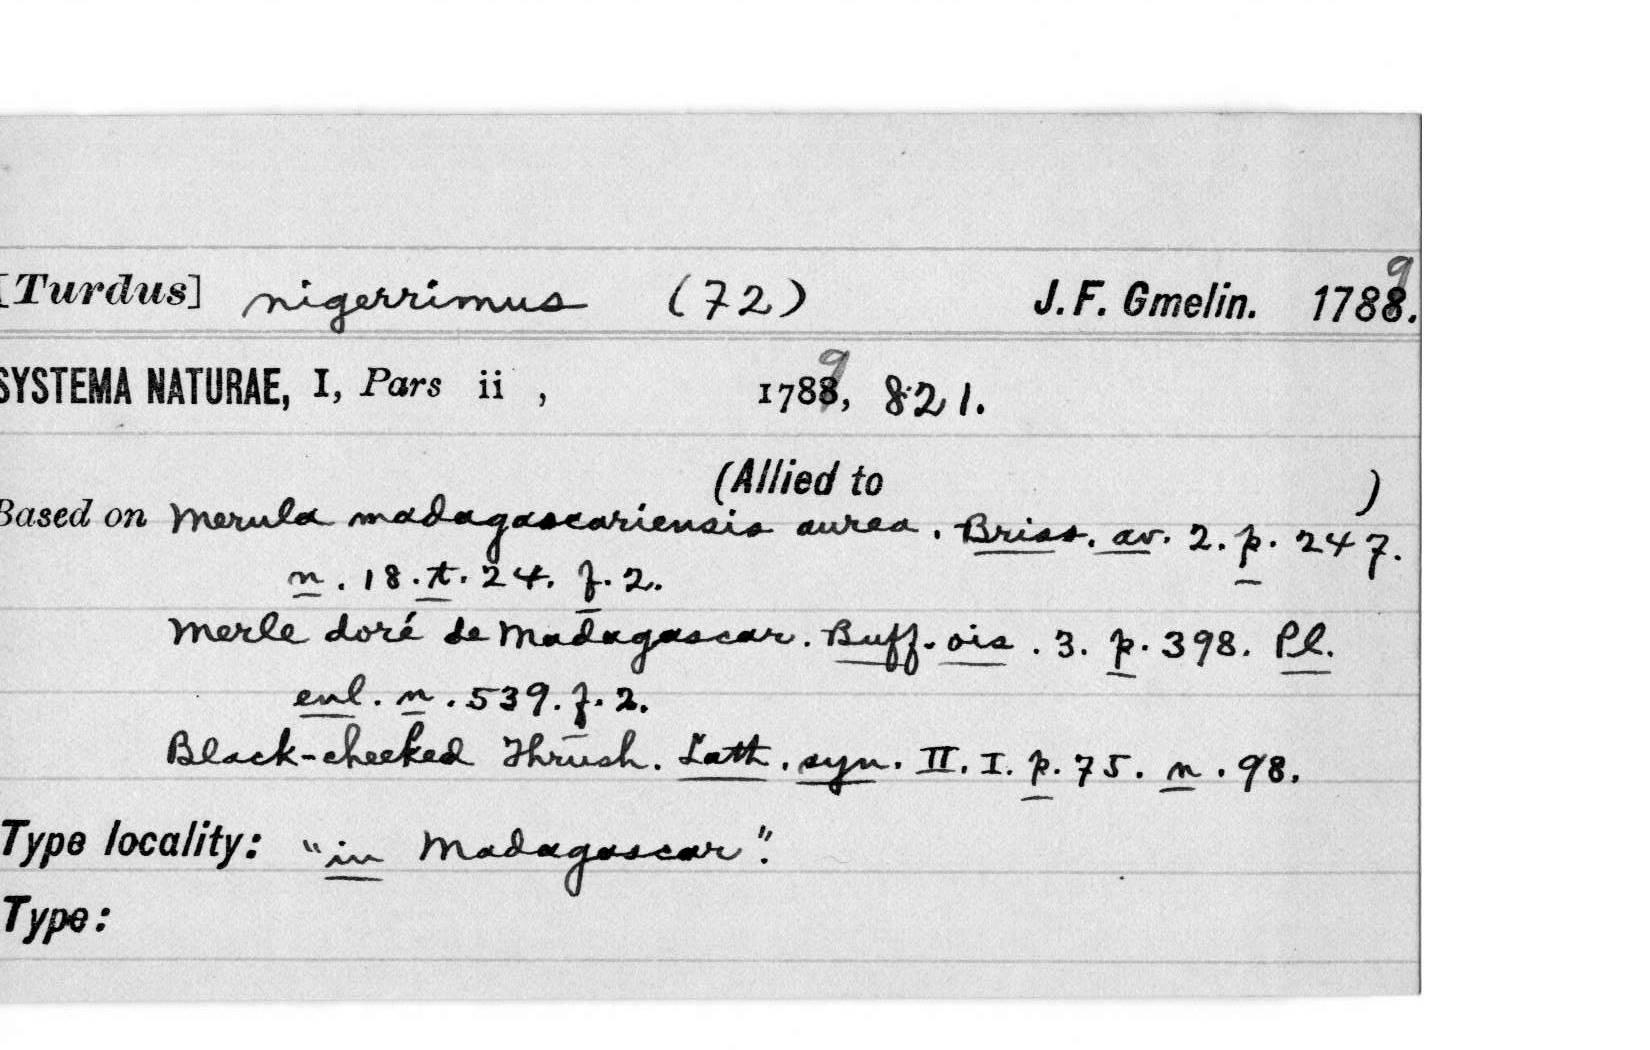 [Turdus] nigerrimus (72) J. F. Gmelin. 1788. 9
SYSTEMA NATURAE, I, Pars ii , 1788, 9 821.
(Allied to )
Based on Merula madagascariensis aurea. Briss. av. 2. p. 247.
n. 18. t. 24. f. 2.
Merle doré de Madagascar. Buff. ois. 3. p. 398. Pl.
enl. n. 539. f. 2.
Black-cheeked Thrush. Lath. syn. II. I. p. 75. n. 98.
Type locality: "in Madagascar".
Type: